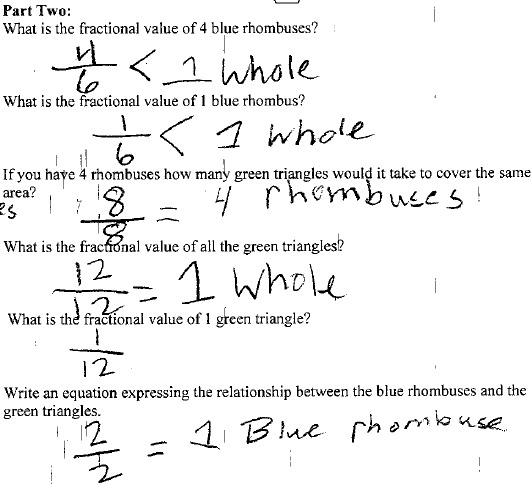 Part Two:
What is the fractional value of 4 blue rhombuses?
4/6 < 1 whole
What is the fractional value of 1 blue rhombus?
1/6 < 1 whole
If you have 4 rhombuses how many green triangles would it take to cover the same
area?
es 8/8 = 4 rhombuses!
What is the fractional value of all the green triangles?
12/12 = 1 whole
What is the fractional value of 1 green triangle?
1/12
Write an equation expressing the relationship between the blue rhombuses and the
green triangles.
2/2 = 1 Blue rhombuse